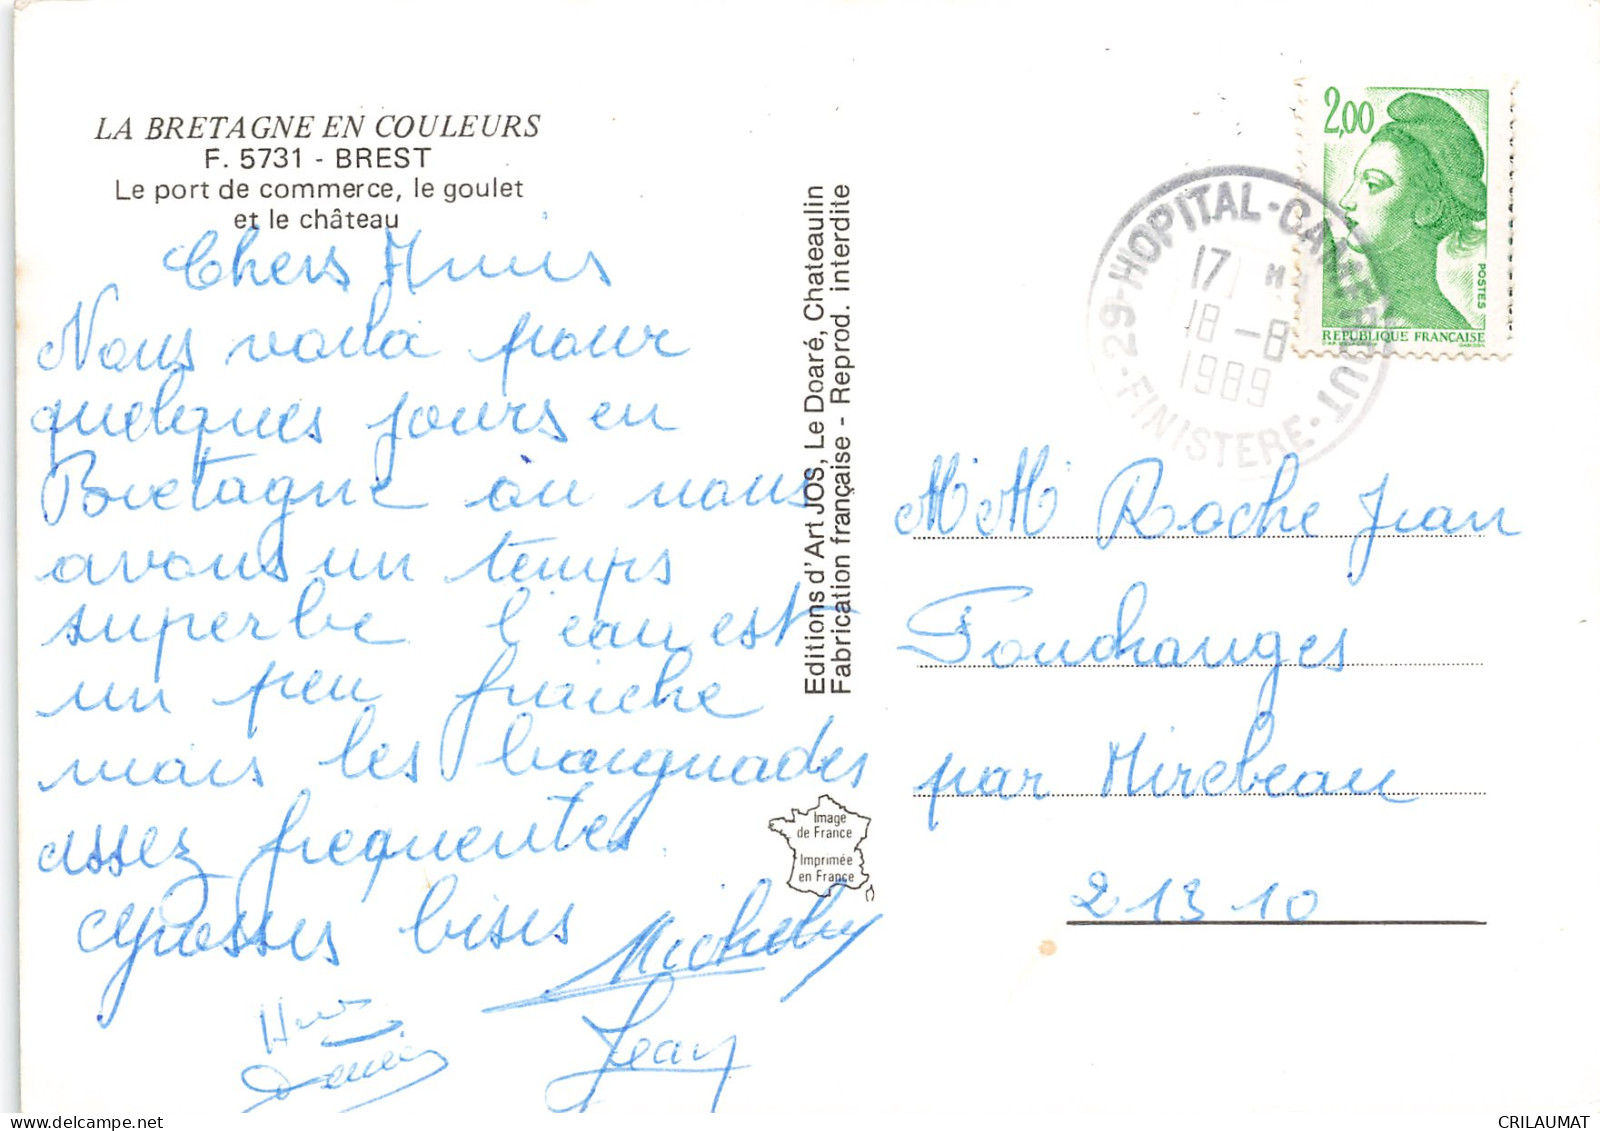 LA BRETAGNE EN COULEURS
F. 5731 - BREST
Le port de commerce, le goulet
et le château
Chers Amis
Nous voila pour
quelques jours en
Bretagne où nous
avons un temps
superbe l'eau est
un peu fraiche
mais les baignades
assez frequentes
grosses bises
Jean
Editions d'Art JOS, Le Doaré, Chateaulin
Fabrication française - Reprod. interdite
Image
de France
Imprimée
en France
2,00
POSTES
REPUBLIQUE FRANÇAISE
29-HOPITAL-CAMFROUT-FINISTERE
17 H
18-8
1989
M M Roche Jean
Fouchanges
par Mirebeau
21310
CRILAUMAT